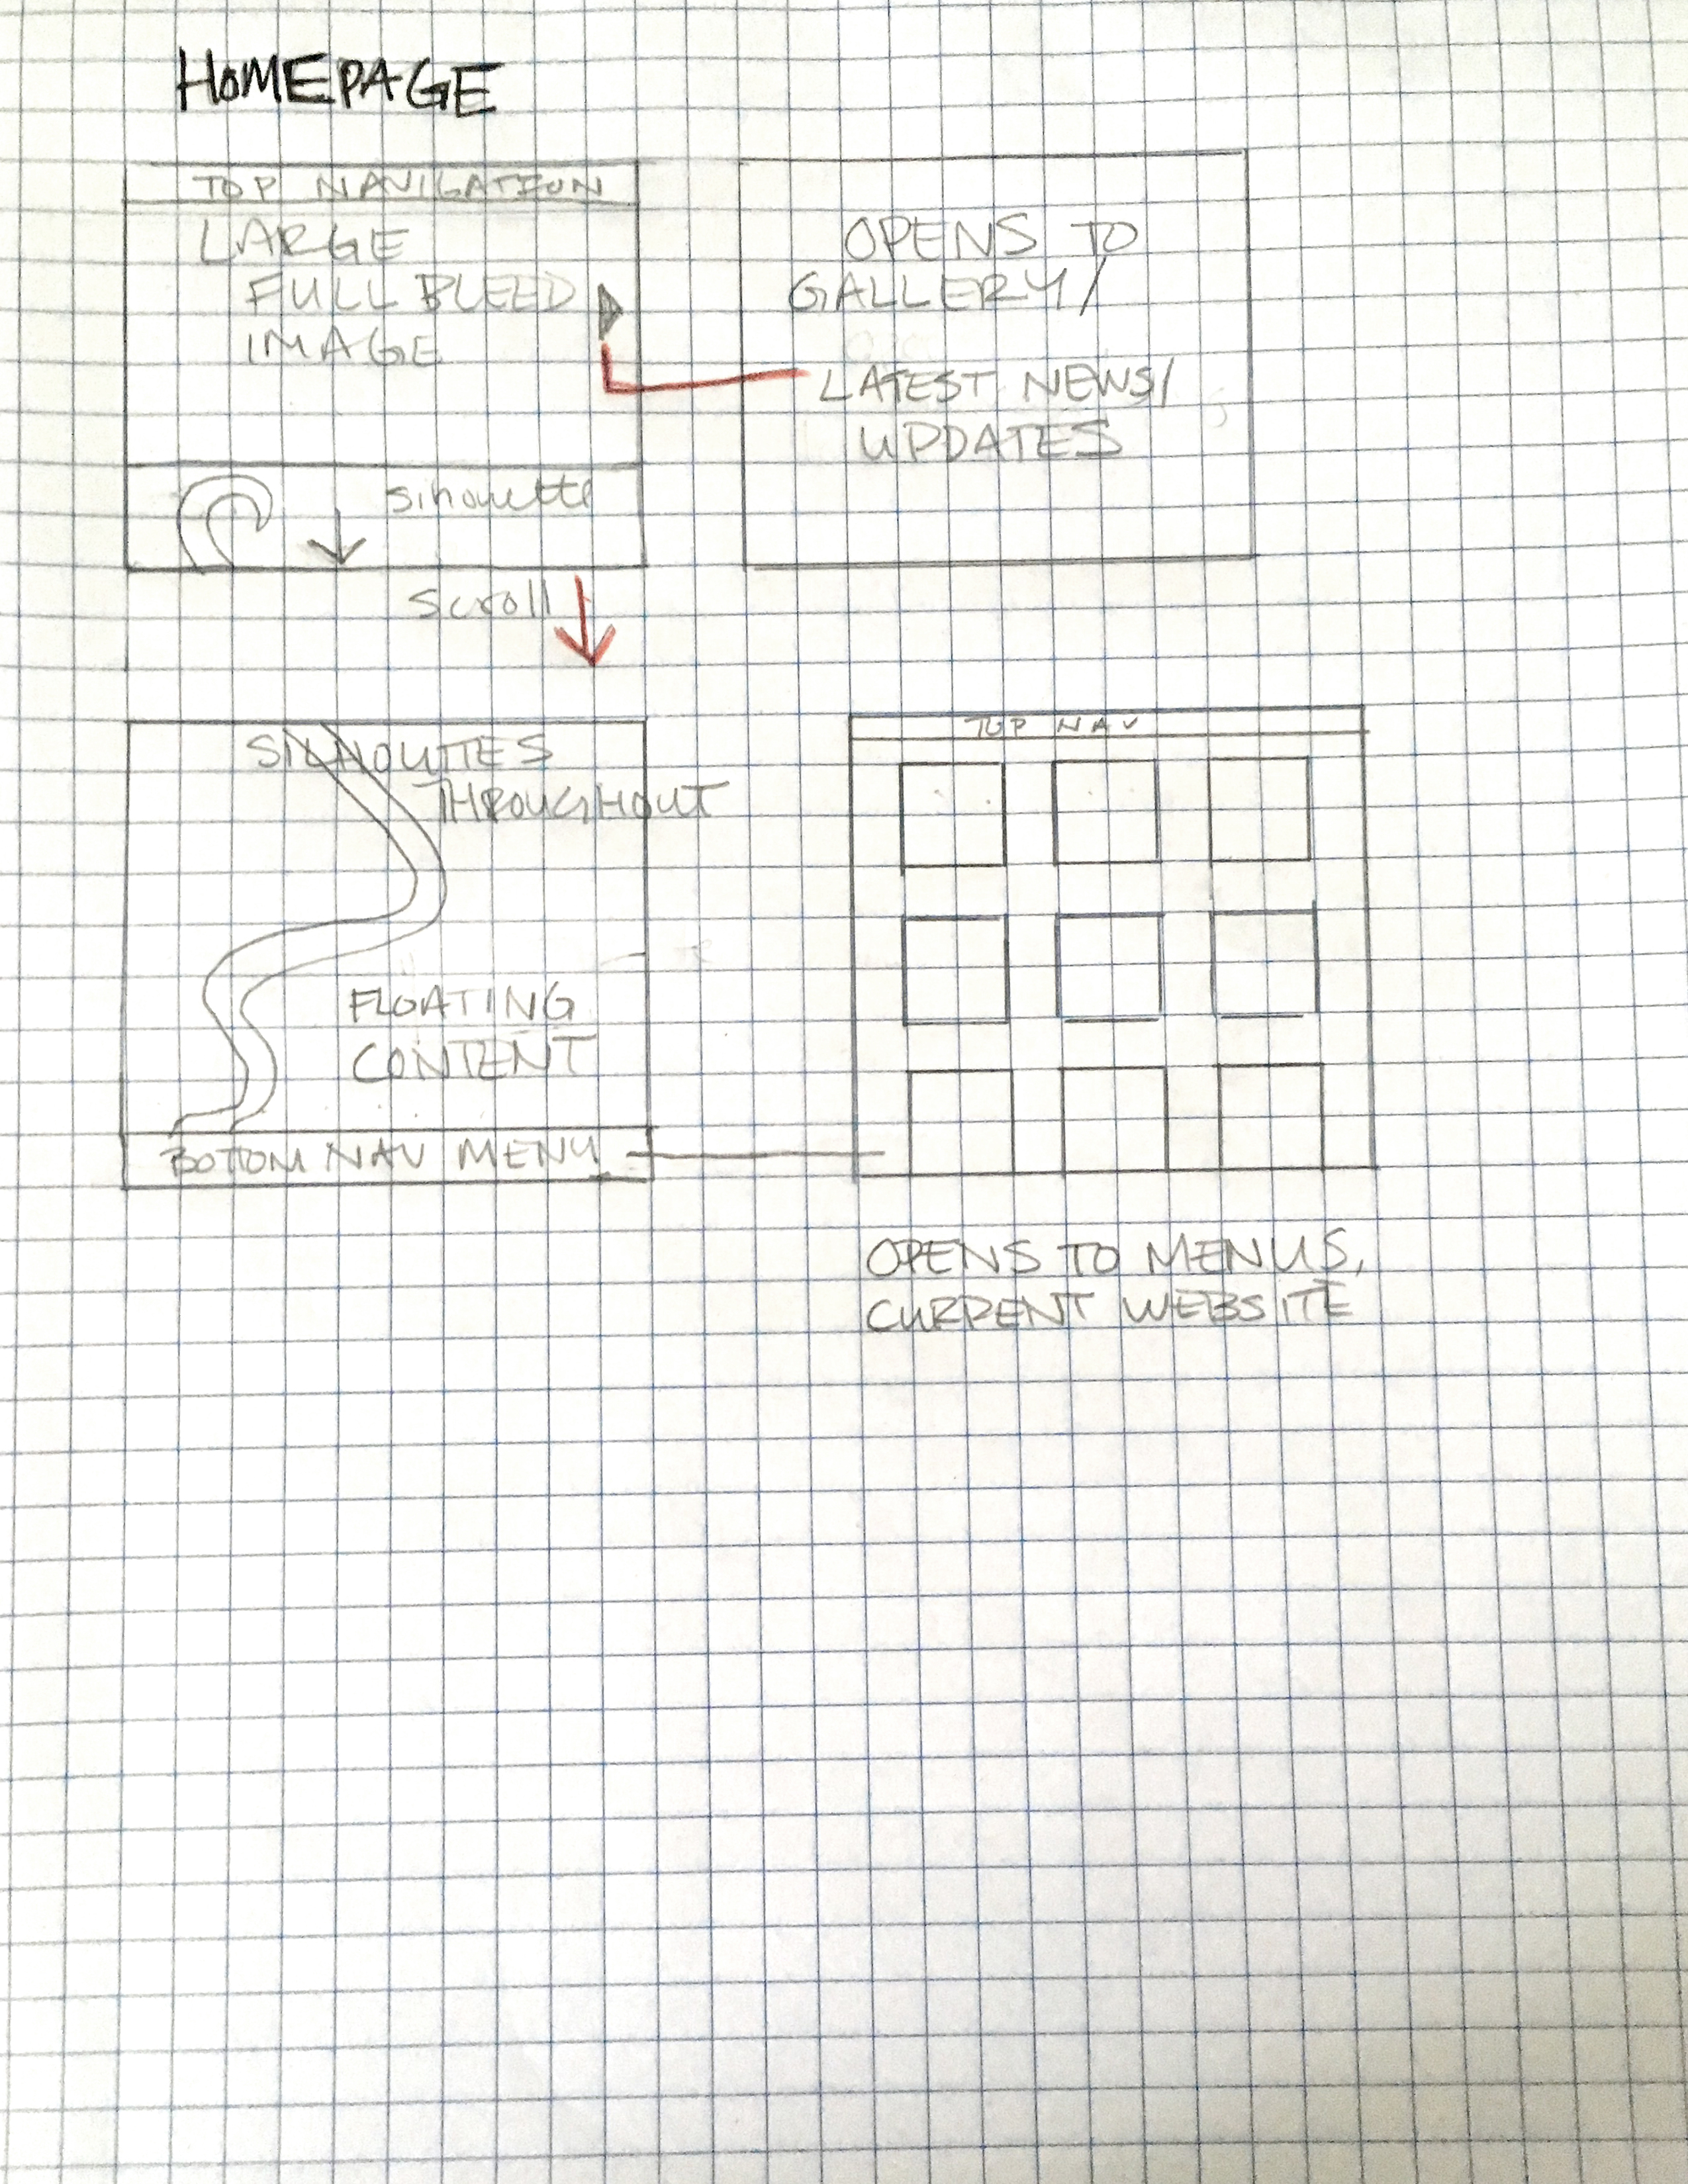 HOMEPAGE
TOP NAVIGATION
LARGE
FULL BLEED
IMAGE
sihouette
scroll
OPENS TO
GALLERY/
LATEST NEWS/
UPDATES
SILHOUTTES
THROUGHOUT
FLOATING
CONTENT
BOTTOM NAV MENU
TOP NAV
OPENS TO MENUS,
CURRENT WEBSITE